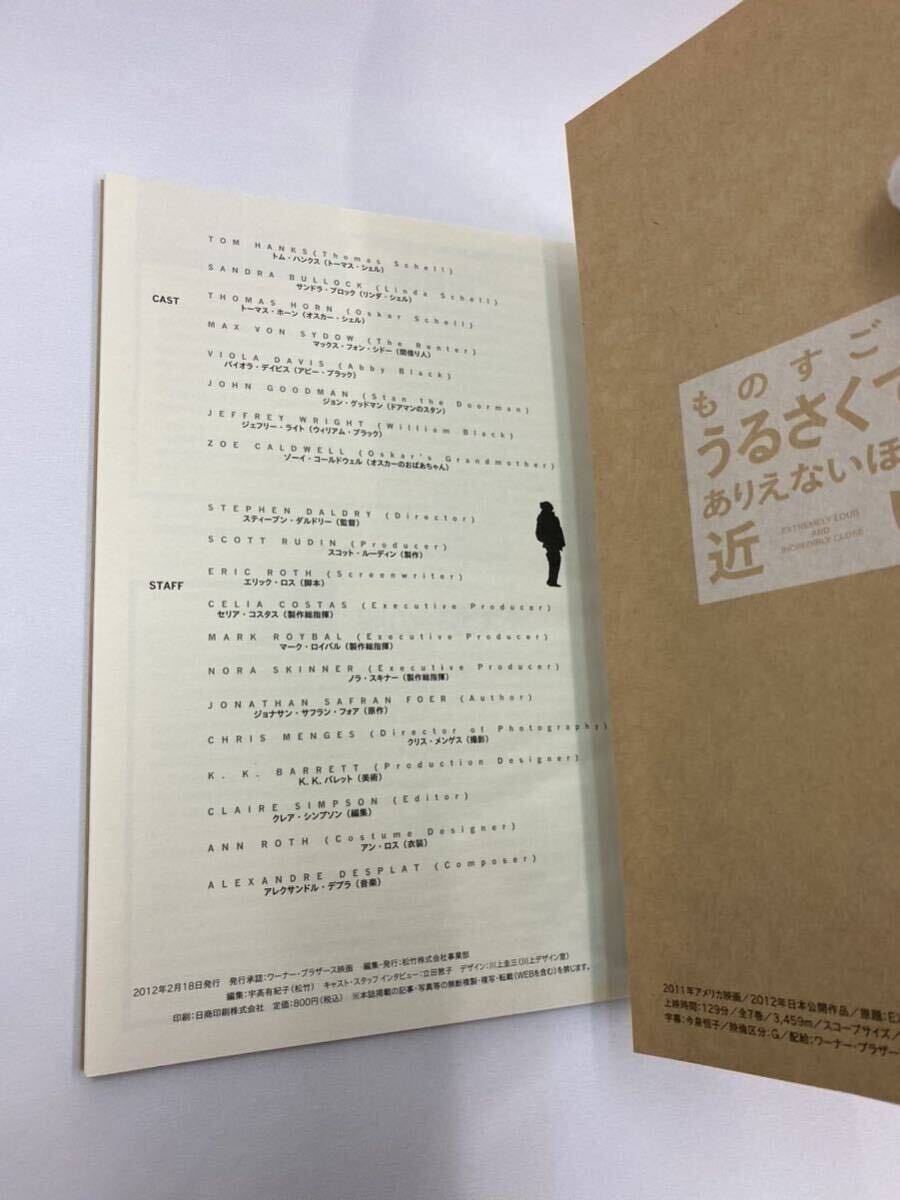 CAST
TOM HANKS (Thomas Schell)
トム・ハンクス（トーマス・シェル）
SANDRA BULLOCK (Linda Schell)
サンドラ・ブロック（リンダ・シェル）
THOMAS HORN (Oskar Schell)
トーマス・ホーン（オスカー・シェル）
MAX VON SYDOW (The Renter)
マックス・フォン・シドー（間借り人）
VIOLA DAVIS (Abby Black)
バイオラ・デイビス（アビー・ブラック）
JOHN GOODMAN (Stan the Doorman)
ジョン・グッドマン（ドアマンのスタン）
JEFFREY WRIGHT (William Black)
ジェフリー・ライト（ウィリアム・ブラック）
ZOE CALDWELL (Oskar's Grandmother)
ゾーイ・コールドウェル（オスカーのおばあちゃん）
STAFF
STEPHEN DALDRY (Director)
スティーブン・ダルドリー（監督）
SCOTT RUDIN (Producer)
スコット・ルーディン（製作）
ERIC ROTH (Screenwriter)
エリック・ロス（脚本）
CELIA COSTAS (Executive Producer)
セリア・コスタス（製作総指揮）
MARK ROYBAL (Executive Producer)
マーク・ロイバル（製作総指揮）
NORA SKINNER (Executive Producer)
ノラ・スキナー（製作総指揮）
JONATHAN SAFRAN FOER (Author)
ジョナサン・サフラン・フォア（原作）
CHRIS MENGES (Director of Photography)
クリス・メンゲス（撮影）
K. K. BARRETT (Production Designer)
K.K.バレット（美術）
CLAIRE SIMPSON (Editor)
クレア・シンプソン（編集）
ANN ROTH (Costume Designer)
アン・ロス（衣装）
ALEXANDRE DESPLAT (Composer)
アレクサンドル・デプラ（音楽）
2012年2月18日発行 発行承認：ワーナー・ブラザース映画 編集・発行：松竹株式会社事業部
編集：宇高有紀子（松竹） キャスト・スタッフ インタビュー：立田敦子 デザイン：川上圭三（川上デザイン室）
印刷：日商印刷株式会社 定価：800円（税込） ※本誌掲載の記事・写真等の無断複製・複写・転載（WEBを含む）を禁じます。
ものすご
うるさくて
ありえないほ
近
EXTREMELY LOUD
AND
INCREDIBLY CLOSE
2011年アメリカ映画／2012年日本公開作品／原題：EX
上映時間：129分／全7巻／3,459m／スコープサイズ／
字幕：今泉恒子／映倫区分：G／配給：ワーナー・ブラザー